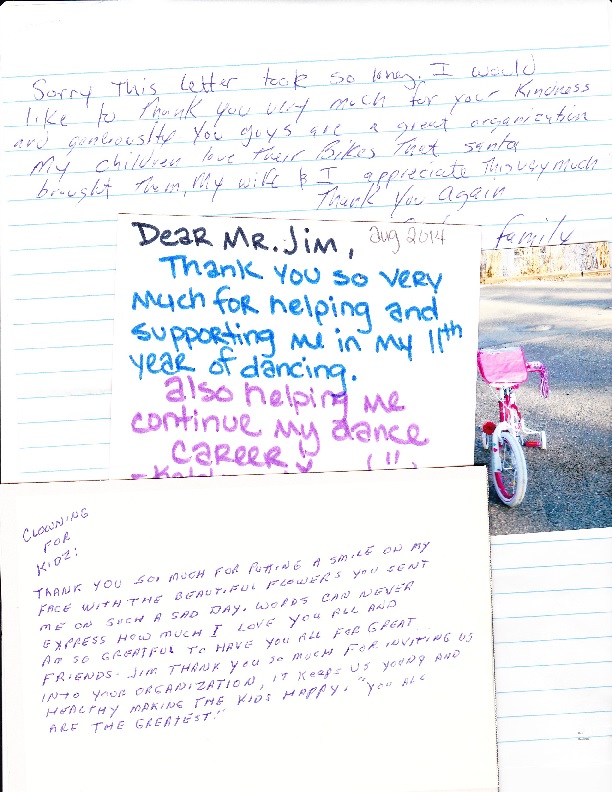 Sorry This letter took so long. I would
like to Thank you very much for your kindness
and generousity You guys are a great organization
My children love Their Bikes That santa
brought Them, My wife & I appreciate This very much
Thank You Again
family
Dear Mr. Jim,
Aug 2014
Thank you so very
much for helping and
supporting me in my 11th
year of dancing.
also helping me
continue my dance
career!
CLOWNING
FOR
KIDZ:
THANK YOU SO MUCH FOR PUTTING A SMILE ON MY
FACE WITH THE BEAUTIFUL FLOWERS YOU SENT
ME ON SUCH A SAD DAY. WORDS CAN NEVER
EXPRESS HOW MUCH I LOVE YOU ALL AND
AM SO GREATFUL TO HAVE YOU ALL FOR GREAT
FRIENDS. JIM THANK YOU SO MUCH FOR INVITING US
INTO YOUR ORGANIZATION, IT KEEPS US YOUNG AND
HEALTHY MAKING THE KIDS HAPPY. "YOU ALL
ARE THE GREATEST!"